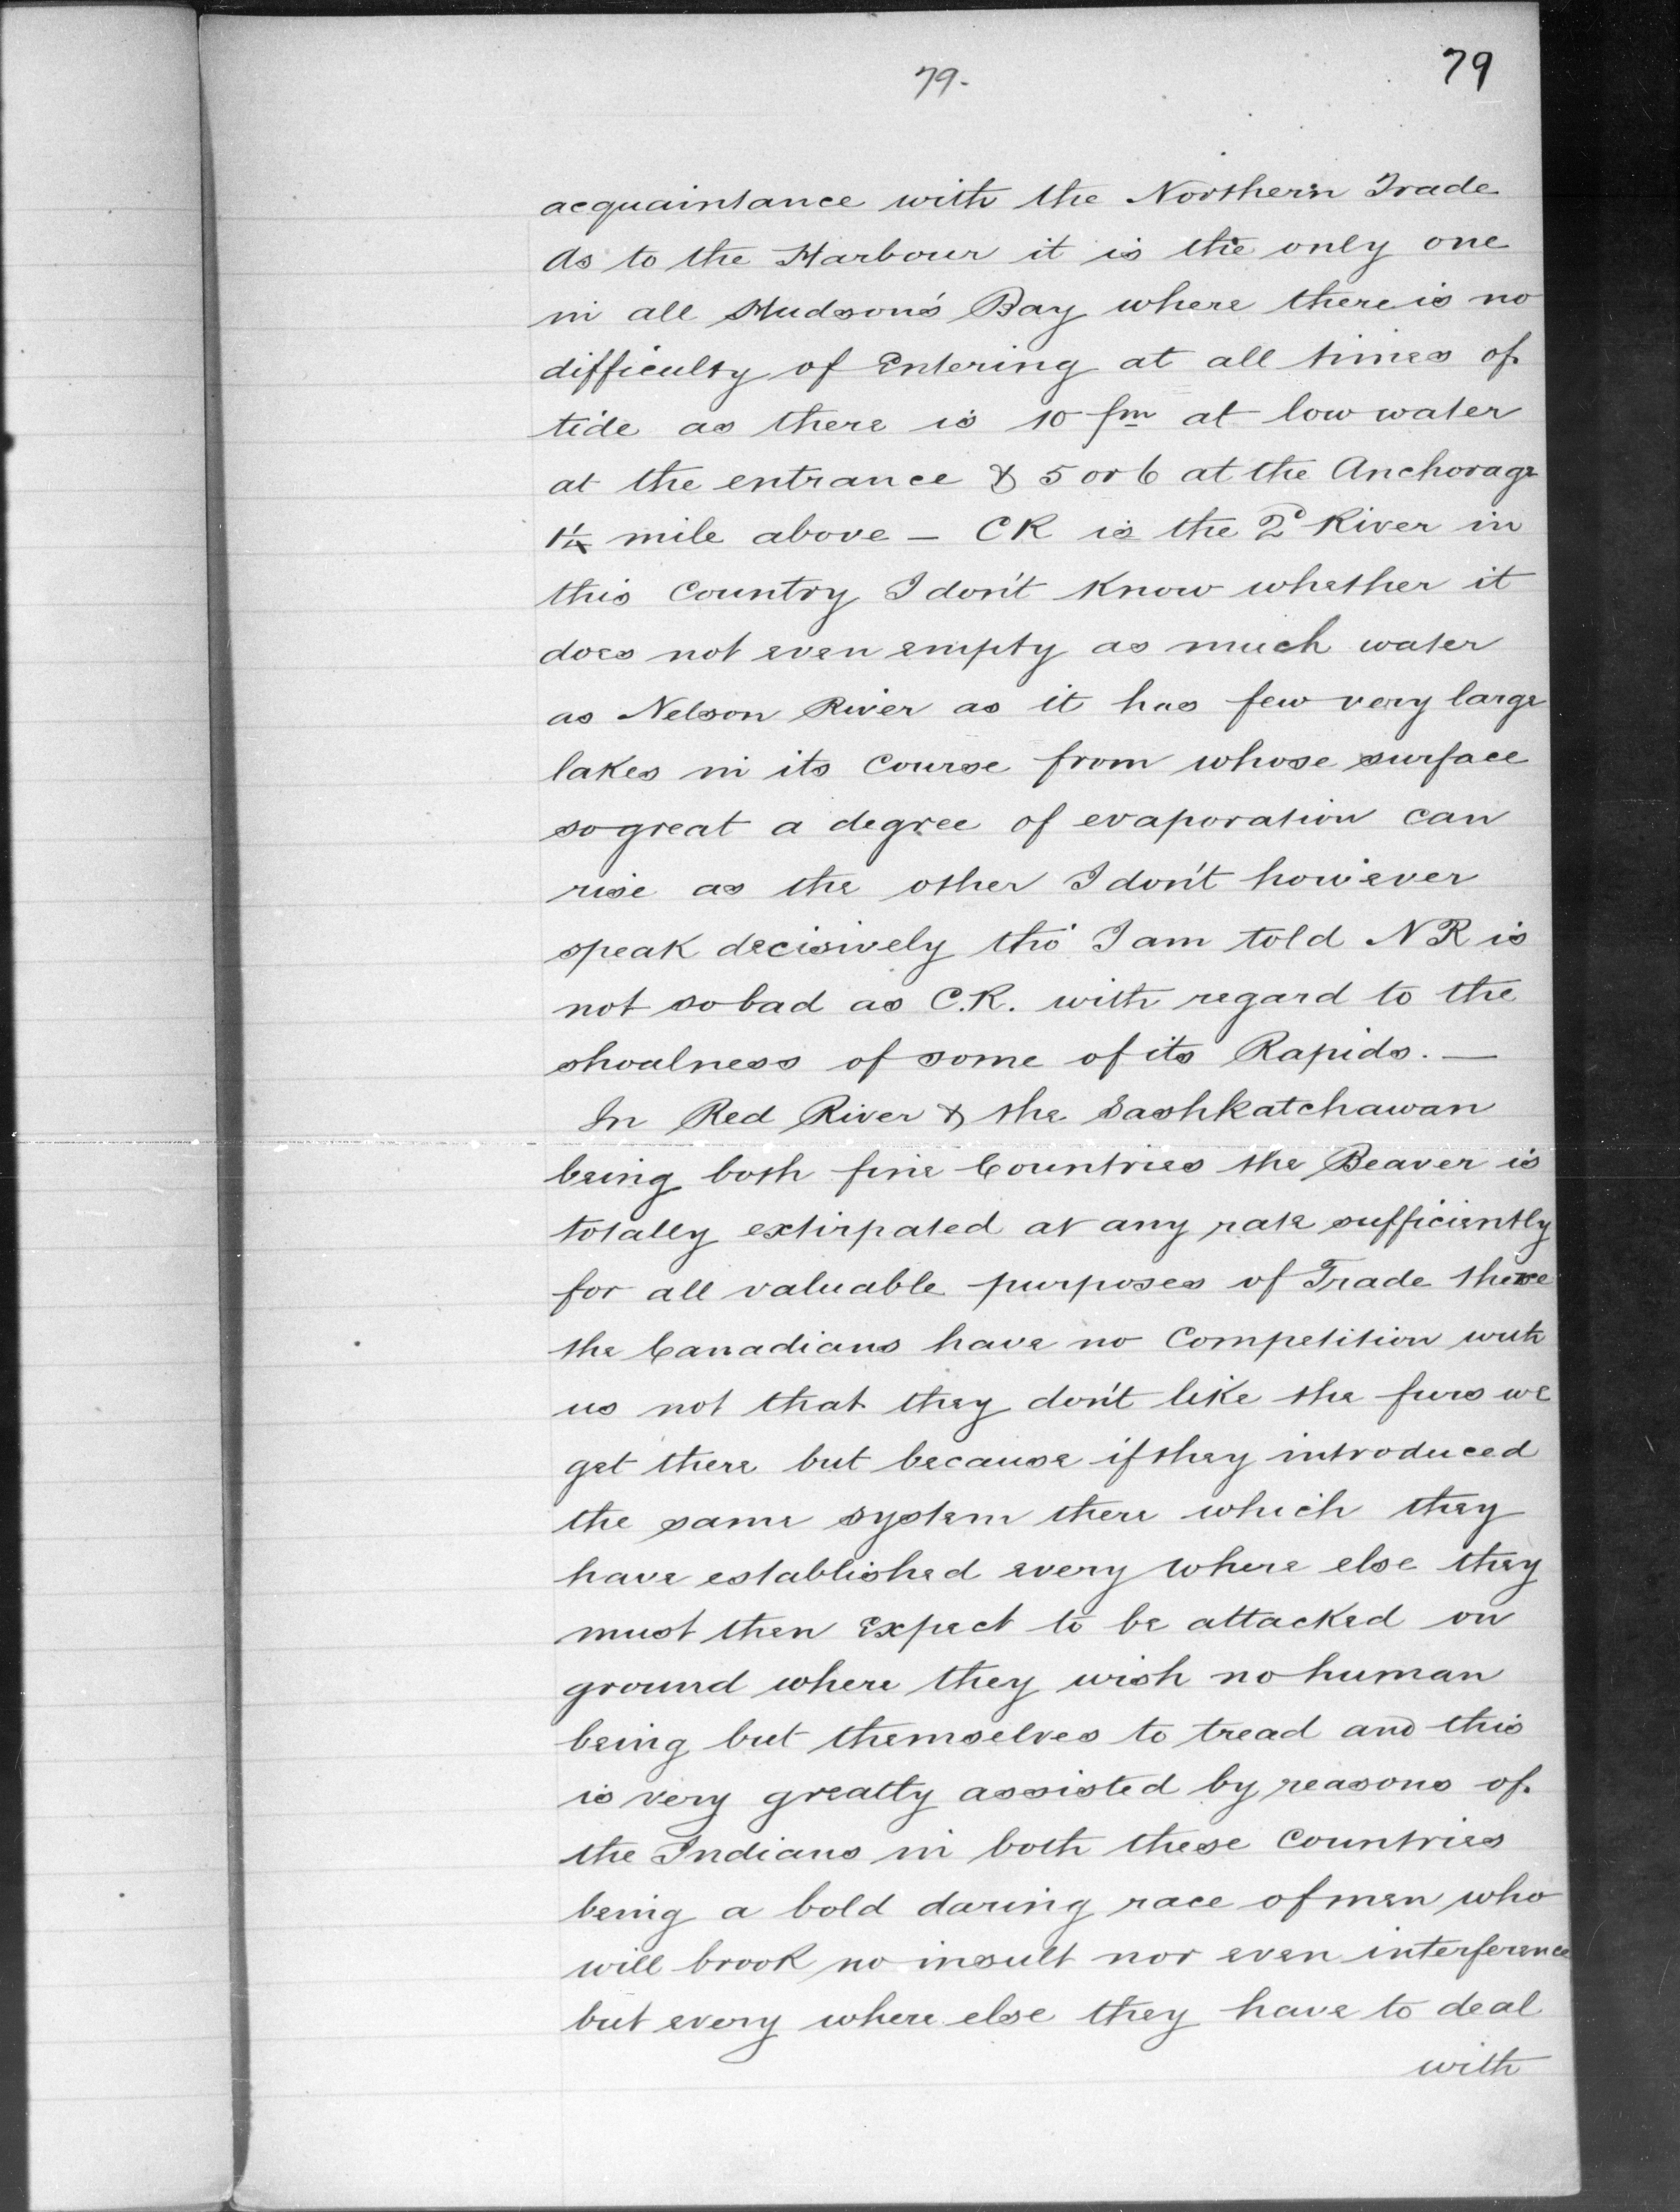 79.
79
acquaintance with the Northern Trade
As to the Harbour it is the only one
in all Hudson's Bay where there is no
difficulty of Entering at all times of
tide as there is 10 fm at low water
at the entrance & 5 or 6 at the Anchorage
1¼ mile above — CR is the 2d River in
this Country I don't know whether it
does not even empty as much water
as Nelson River as it has few very large
lakes in its course from whose surface
so great a degree of evaporation can
rise as the other I don't however
speak decisively tho' I am told NR is
not so bad as C.R. with regard to the
shoalness of some of its Rapids. —
In Red River & the Sashkatchawan
being both fine Countries the Beaver is
totally extirpated at any rate sufficiently
for all valuable purposes of Trade there
the Canadians have no Competition with
us not that they don't like the furs we
get there but because if they introduced
the same system there which they
have established every where else they
must then Expect to be attacked on
ground where they wish no human
being but themselves to tread and this
is very greatly assisted by reasons of
the Indians in both these Countries
being a bold daring race of men who
will brook no insult nor even interference
but every where else they have to deal
with